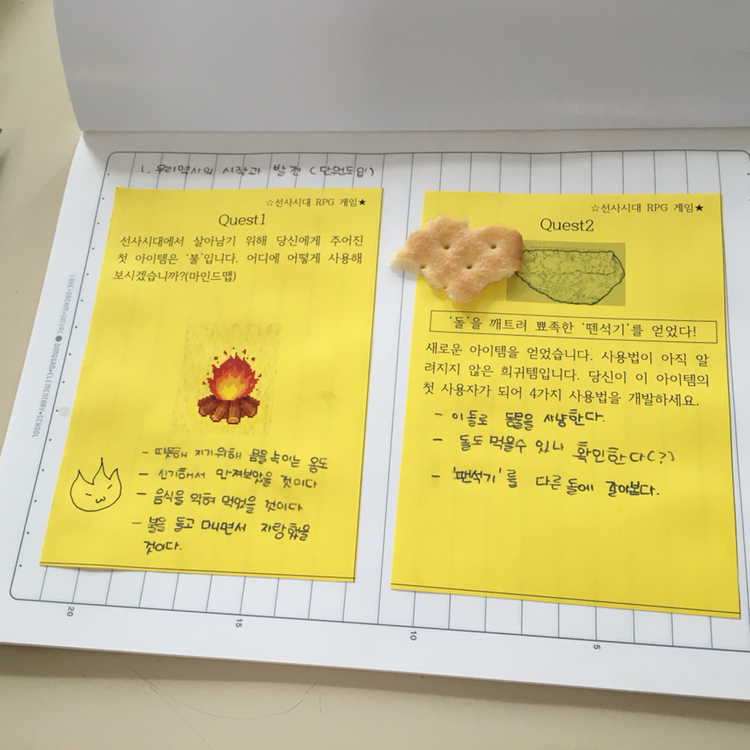 1. 우리역사의 시작과 발전 (단원도입)
☆선사시대 RPG 게임★
Quest1
선사시대에서 살아남기 위해 당신에게 주어진
첫 아이템은 '불'입니다. 어디에 어떻게 사용해
보시겠습니까?(마인드맵)
- 따뜻해 지기위해 몸을 녹이는 용도
- 신기해서 만져보았을 것이다
- 음식을 익혀 먹었을 것이다
- 불을 들고 다니면서 자랑했을
것이다.
☆선사시대 RPG 게임★
Quest2
'돌'을 깨트려 뾰족한 '뗀석기'를 얻었다!
새로운 아이템을 얻었습니다. 사용법이 아직 알
려지지 않은 희귀템입니다. 당신이 이 아이템의
첫 사용자가 되어 4가지 사용법을 개발하세요.
- 이 돌로 동물을 사냥한다.
- 돌도 먹을수 있나 확인한다(?)
- '뗀석기'를 다른 돌에 갈아본다.
20
15
10
5